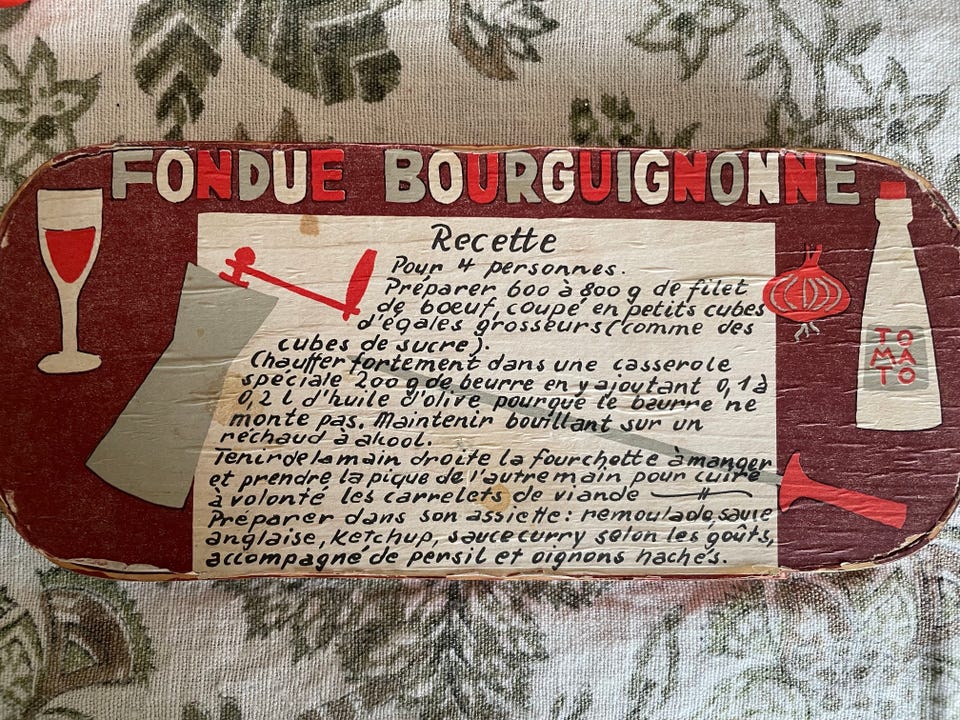 FONDUE BOURGUIGNONNE
Recette
Pour 4 personnes.
Préparer 600 à 800 g de filet
de bœuf, coupé en petits cubes
d'égales grosseurs (comme des
cubes de sucre).
Chauffer fortement dans une casserole
spéciale 200 g de beurre en y ajoutant 0,1 à
0,2 l d'huile d'olive pourque le beurre ne
monte pas. Maintenir bouillant sur un
réchaud à alcool.
Tenir de la main droite la fourchette à manger
et prendre la pique de l'autre main pour cuire
à volonté les carrelets de viande
Préparer dans son assiette: remoulade, sauce
anglaise, Ketchup, sauce curry selon les goûts,
accompagné de persil et oignons hachés.
TO
MA
TO